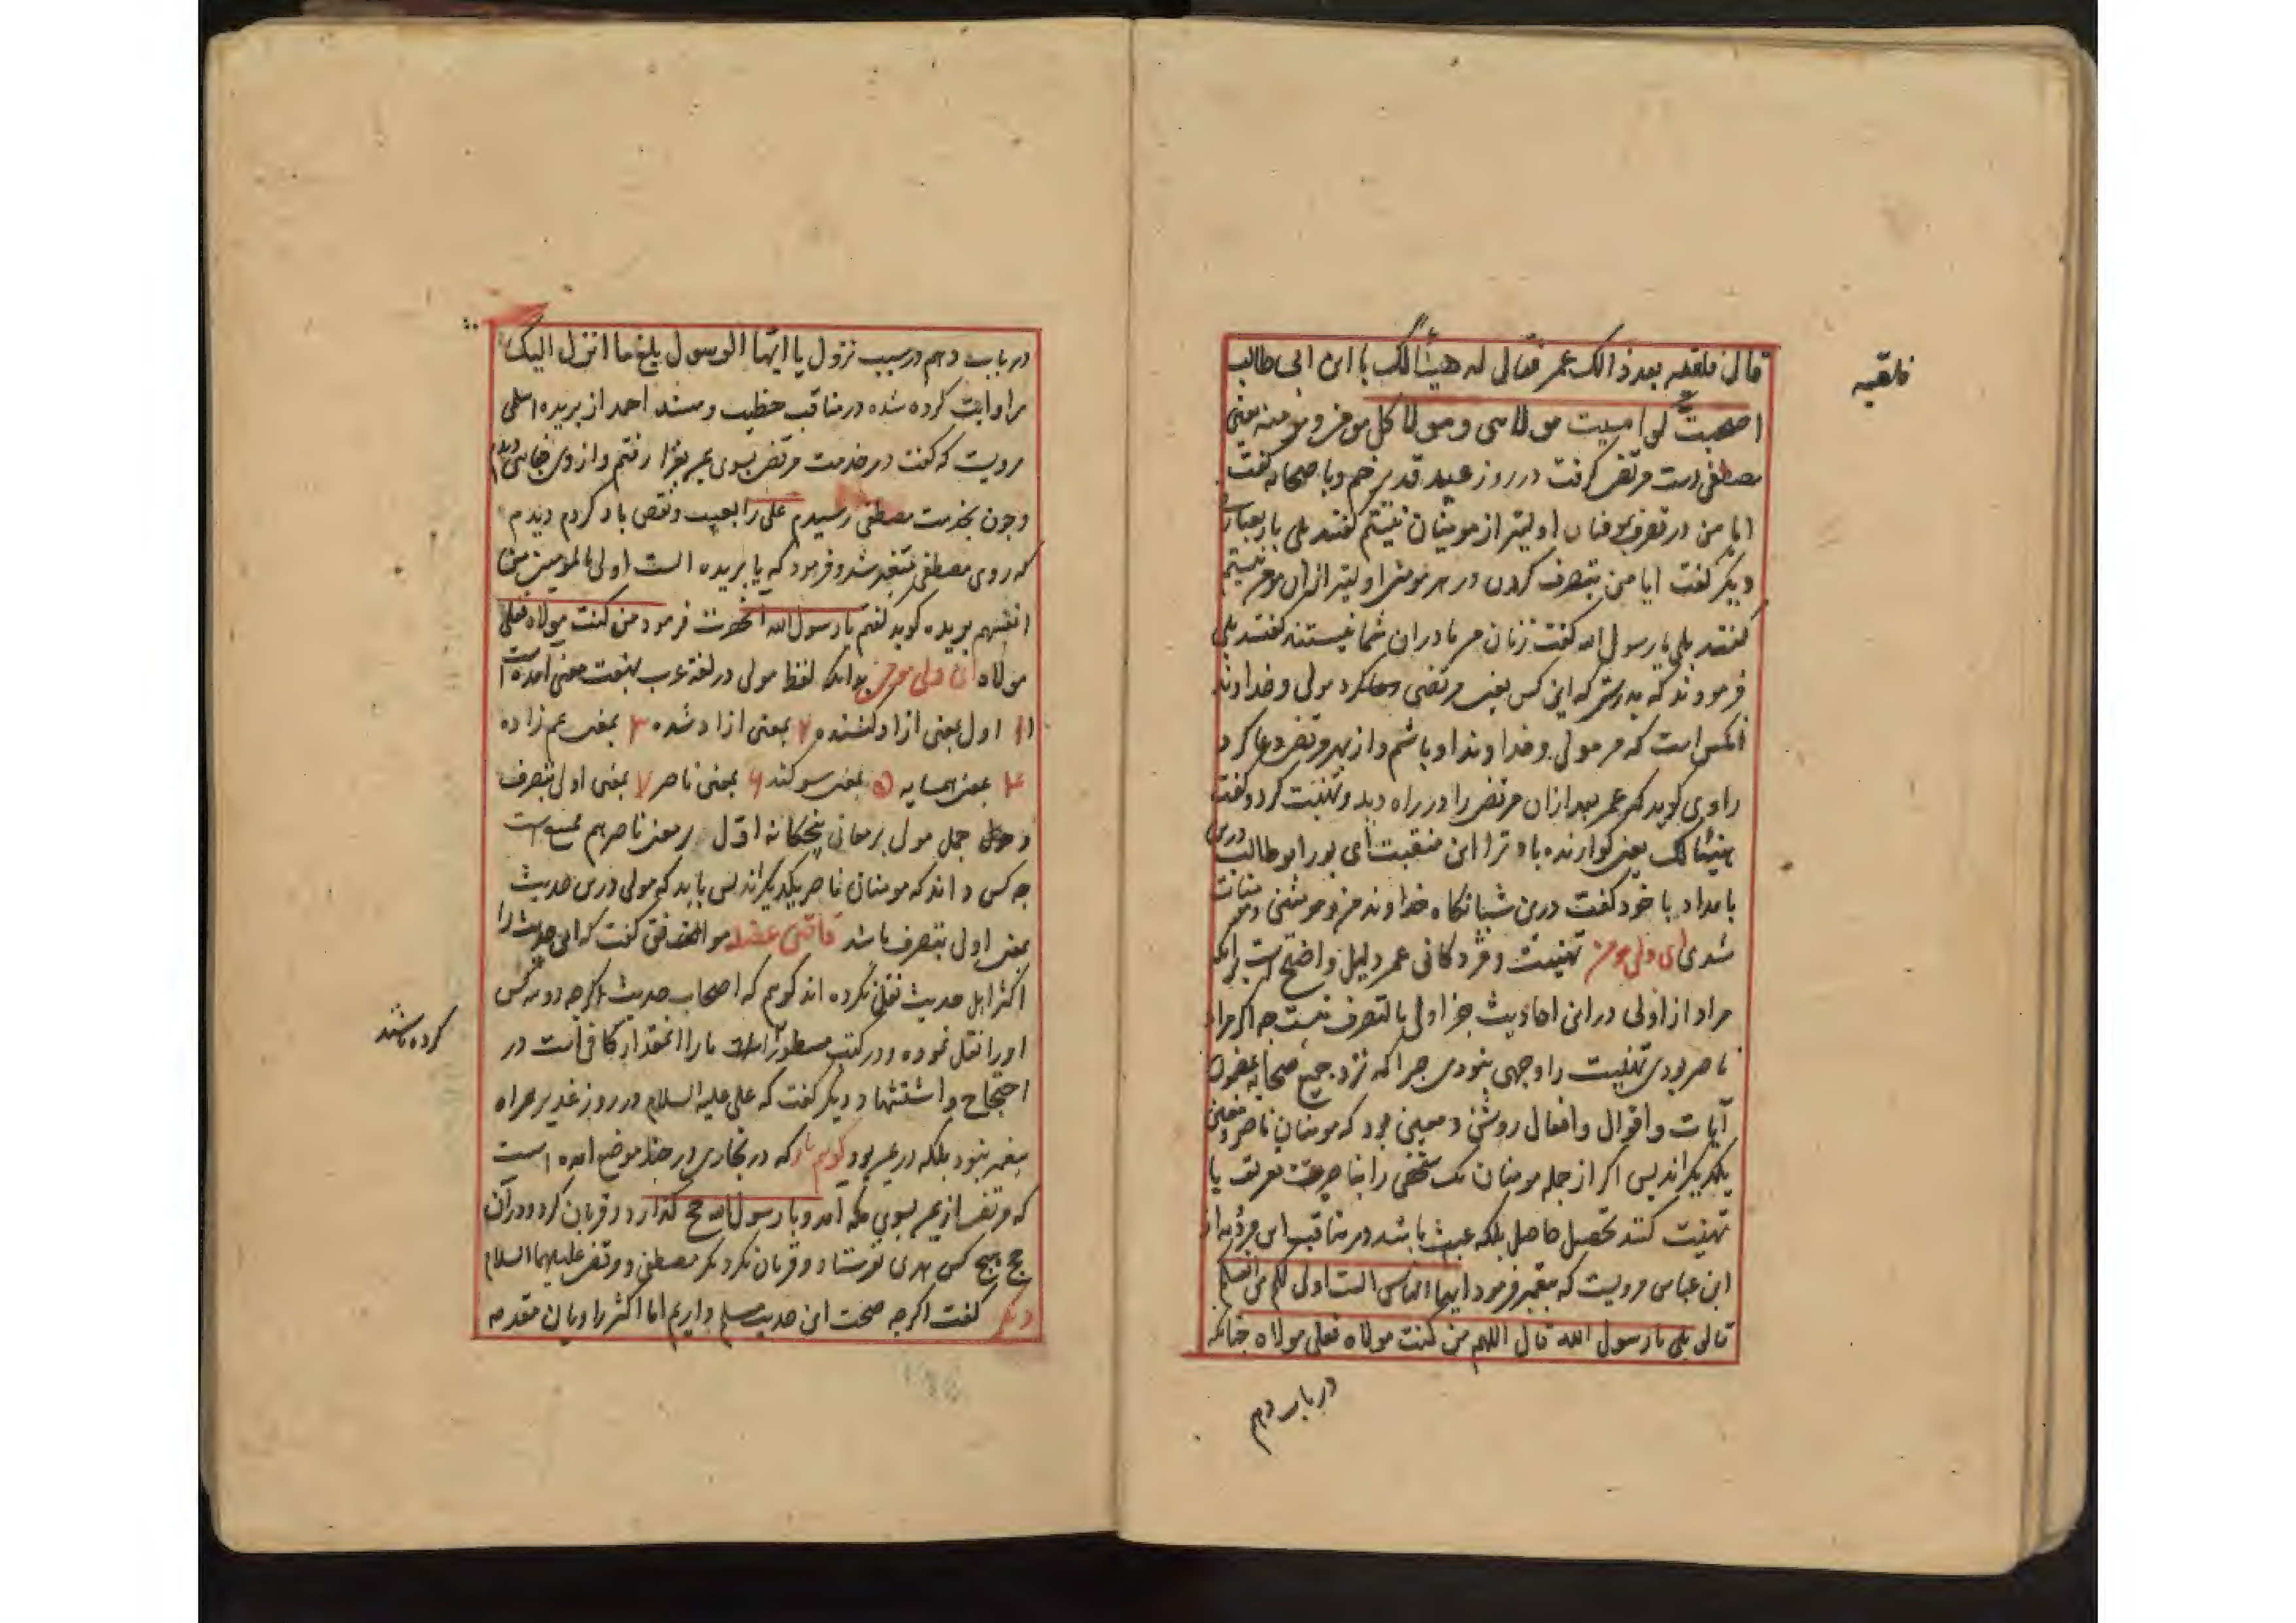 قال فلقیه بعد ذالک عمر فقال له هنیئا لک یا ابن ابی طالب
فلقیه
اصحبت لو امسیت مولاسی و مولا کل مومن و مومنه یعنی
مصطفی دست مرتضی کرفت در روز عید قدیر خم و با صحابه کفت
ایا من در تصرف اولیتر از مومنان نیستم کفتند بلی باز بعبارت
دیکر کفت ایا من بتصرف کردن در هر مومنی اولیتر ازان مومن نیستم
کفتند بلی یا رسول الله کفت زنان من مادران شما نیستند کفتند بلی
فرمودند که بدرستی که این کس یعنی مرتضی مولی و خداوند
انکس است که من مولی و خداوند او باشم و از بهر مرتضی دعا کرد
راوی کوید که عمر بعد ازان مرتضی را در راه دید و تهنیت کرد و کفت
هنیئا لک یعنی کوارنده باد ترا این منقبت ای پور ابو طالب درین
بامداد با خود کفت درین شبانکاه خداوند من و مومنین و مومنات
شدی ای ولی مومن تهنیت و مژدکانی عمر دلیل واضح است برانکه
مراد از اولی در این احادیث جز اولی بالتصرف نیست جه اکر مراد
ناصر بودی تهنیت را وجهی نبودی جرا که نزد جمیع صحابه
آیات و اقوال و افعال روشن و مبین بود که مومنان ناصر و معین
یکدیکراند پس اکر از جمله مومنان یک شخص را بنا صریحت تعریف یا
تهنیت کنند تحصیل حاصل بلکه عبث باشد در مناقب ابن مردویه از
ابن عباس مرویست که پیغمبر فرمود ایها الناس الست اولی لکم من انفسکم
قالو بلی یا رسول الله قال اللهم من کنت مولاه فعلی مولاه جنانکه
در باب دهم
در باب دهم در سبب نزول یا ایها الرسول بلغ ما انزل الیک
روایت کرده شده در مناقب خطیب و مسند احمد از بریده اسلمی
مرویست که کفت در خدمت مرتضی بسوی یمن بغزا رفتم و از وی جفائی دیدم
و چون بخدمت مصطفی رسیدم علی را بعیب و نقص یاد کردم دیدم
که روی مصطفی متغیر شد و فرمود که یا بریده الست اولی بالمومنین من
انفسهم بریده کوید کفتم یا رسول الله انحضرت فرمود من کنت مولاه فعلی
مولاه ای ولی مومن بدانکه لفظ مولی در لغة عرب بهفت معنی آمده است
۱ اول بمعنی ازاد کننده ۲ بمعنی ازاد شده ۳ بمعنی عم زاده
۴ بمعنی همسایه ۵ بمعنی سوکند ۶ بمعنی ناصر ۷ بمعنی اولی بتصرف
و حمل مولی بر معانی پنجکانه اول بر معنی ناصر هم
جه کس داند که مومنان ناصر یکدیکراند پس باید که مولی درین حدیث
بمعنی اولی بتصرف باشد قاضی عضد مواقف کفت که این حدیث را
اکثر اهل حدیث نقل نکرده اند کویم که اصحاب حدیث اکر جه دو سه کس
کرده باشند
اورا نقل نموده و در کتب مسطور است ما را اینمقدار کافی است در
احتجاج و استشهاد و دیکر کفت که علی علیه السلام در روز غدیر همراه
پیغمبر نبود بلکه در یمن بود کویم که در بخاری در چند موضع آمده است
که مرتضی از یمن بسوی مکه آمد و با رسول الله حج کذارد و قربان کرد و در آن
حج هیچ کس هدی نفرستاد و قربان نکرد مکر مصطفی و مرتضی علیهما السلام
دیکر کفت اکر جه صحت این حدیث مسلم داریم اما اکثر راویان مقدمه